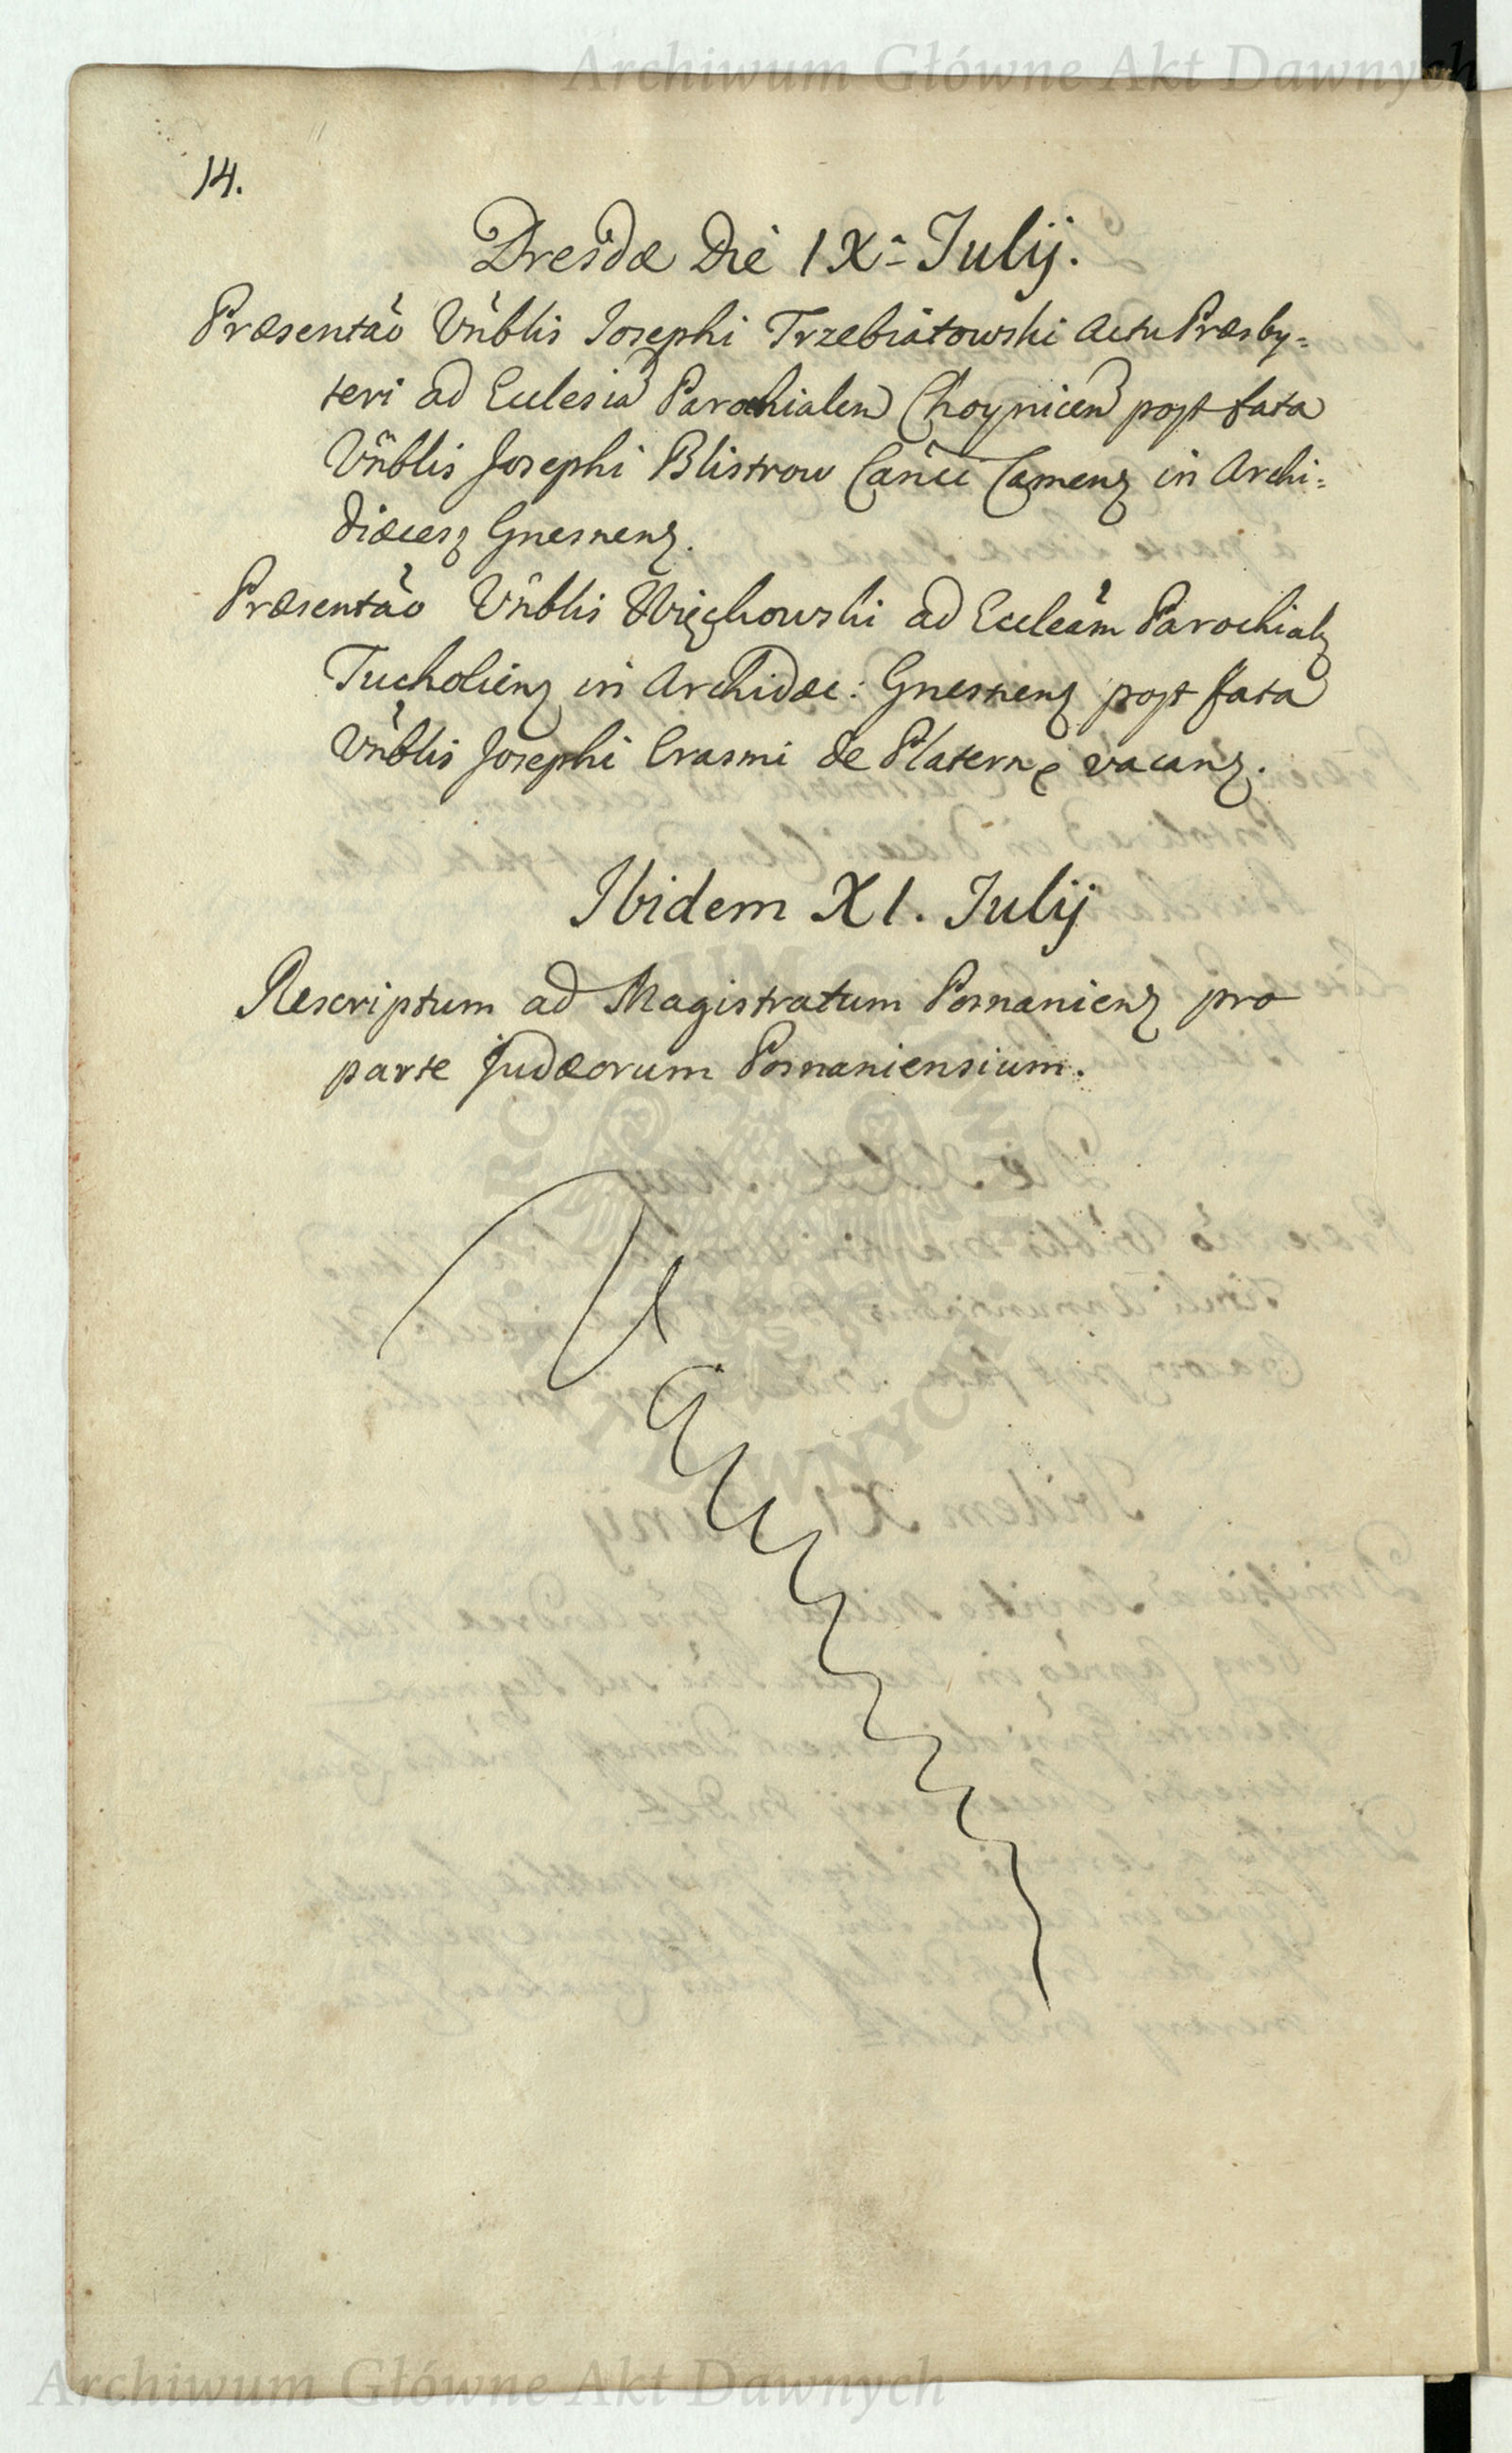 Archiwum Główne Akt Dawnych
14.
Dresdæ Die IXa Julij.
Præsentao Vnblis Josephi Trzebiatowski Actu Præsby=
teri ad Eccles̃ia Parochialem Choynicen post fata
Vnblis Josephi Blistrow Canci Camenz in Archi=
diæcesz Gnesnenz.
Præsentao Vnblis Więckowski ad Eccleam Parochialz
Tucholienz in Archidæc: Gnesnenz post fata
Vnblis Josephi Erasmi de vacanz.
Ibidem XI. Julij
Rescriptum ad Magistratum Posnanienz pro
parte Judæorum Posnaniensium.
Archiwum Główne Akt Dawnych